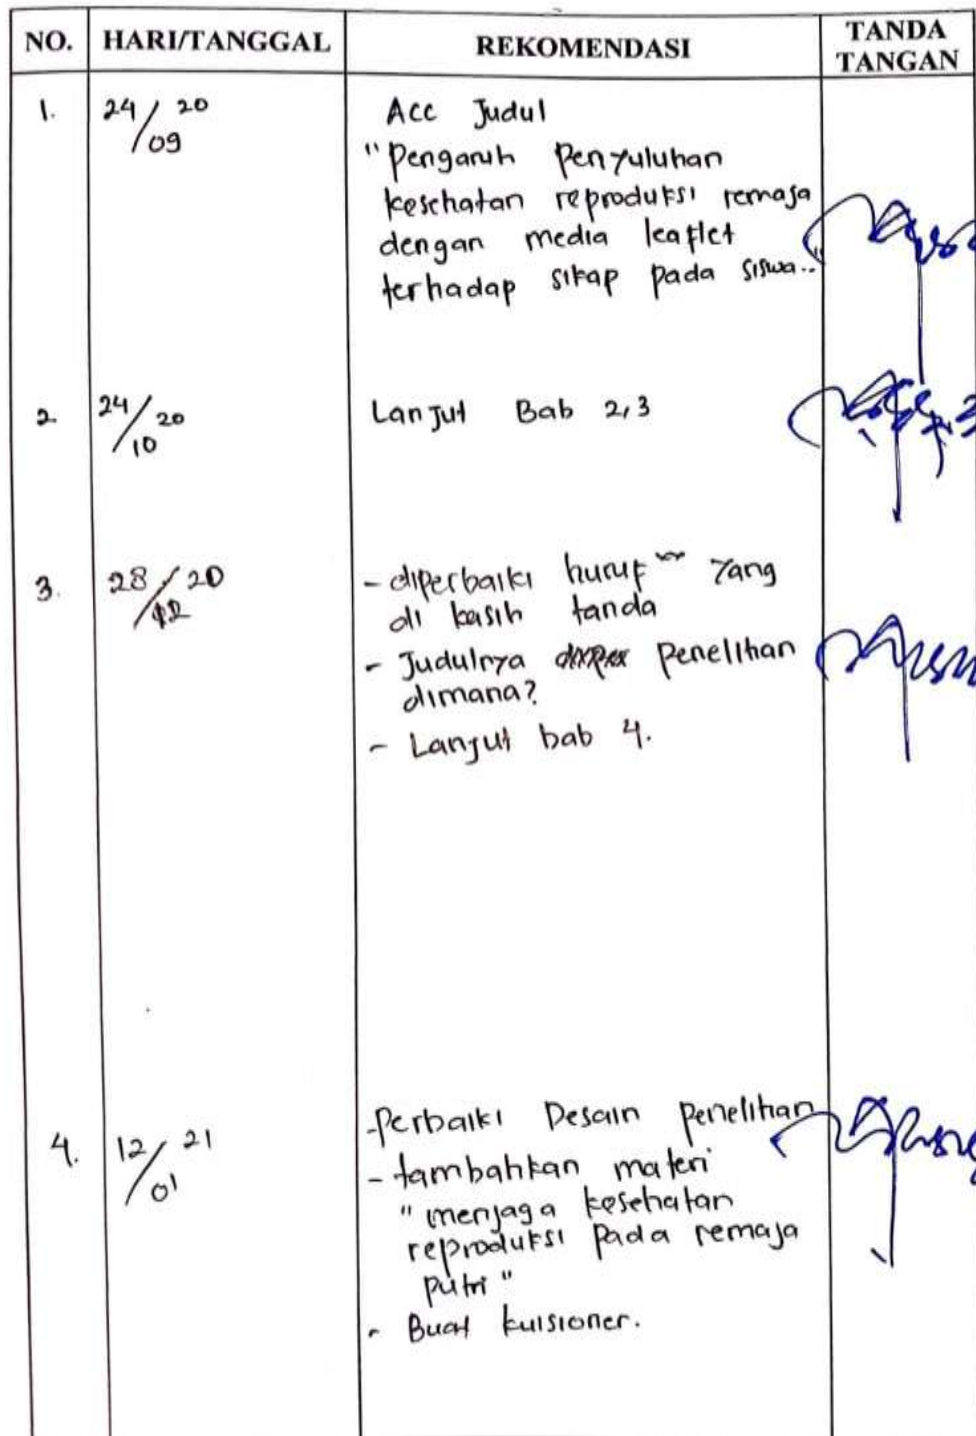 NO. HARI/TANGGAL REKOMENDASI TANDA TANGAN
1. 24/09 20 Acc Judul
"Pengaruh Penyuluhan
kesehatan reproduksi remaja
dengan media leaflet
terhadap sikap pada siswa.."
2. 24/10 20 Lanjut Bab 2,3
3. 28/12 20 - diperbaiki huruf" yang
di kasih tanda
- Judulnya penelitian
dimana?
- Lanjut bab 4.
4. 12/01 21 - Perbaiki Desain penelitian
- tambahkan materi
"menjaga kesehatan
reproduksi pada remaja
putri"
- Buat kuisioner.